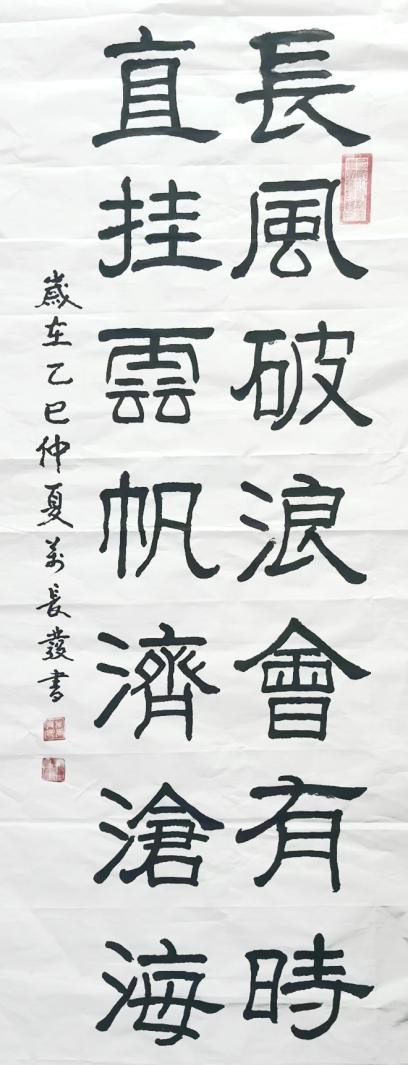 長風破浪會有時
直挂雲帆濟滄海
歲在乙巳仲夏萬長發書